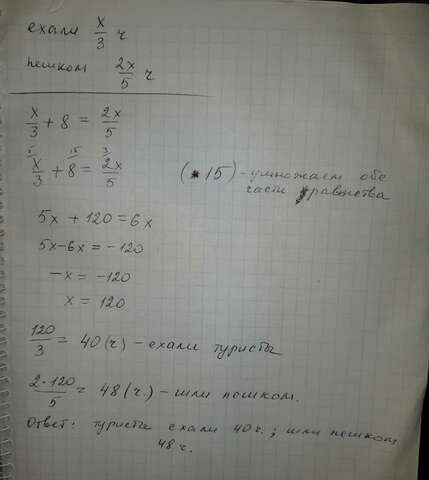 ехали x/3 ч
пешком 2x/5 ч
x/3 + 8 = 2x/5
x/3 ⁵ + 8 ¹⁵ = 2x/5 ³ (*15) - умножаем обе
части равенства
5x + 120 = 6x
5x - 6x = -120
-x = -120
x = 120
120/3 = 40 (ч) - ехали туристы
2·120/5 = 48 (ч.) - шли пешком.
Ответ: туристы ехали 40 ч.; шли пешком
48 ч.